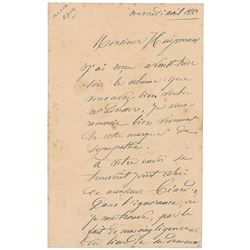 mercredi avril 1882
Monsieur Huysmans
J'ai reçu avant hier
soir le volume que
vous avez bien voulu
m'adresser, je vous
remercie bien vivement
de cette marque de
sympathie
à votre envoi se
trouvait joint celui
de monsieur Céard.
Dans l'ignorance où
je me trouve, par le
fait de ma négligence,
du lieu de sa demeure